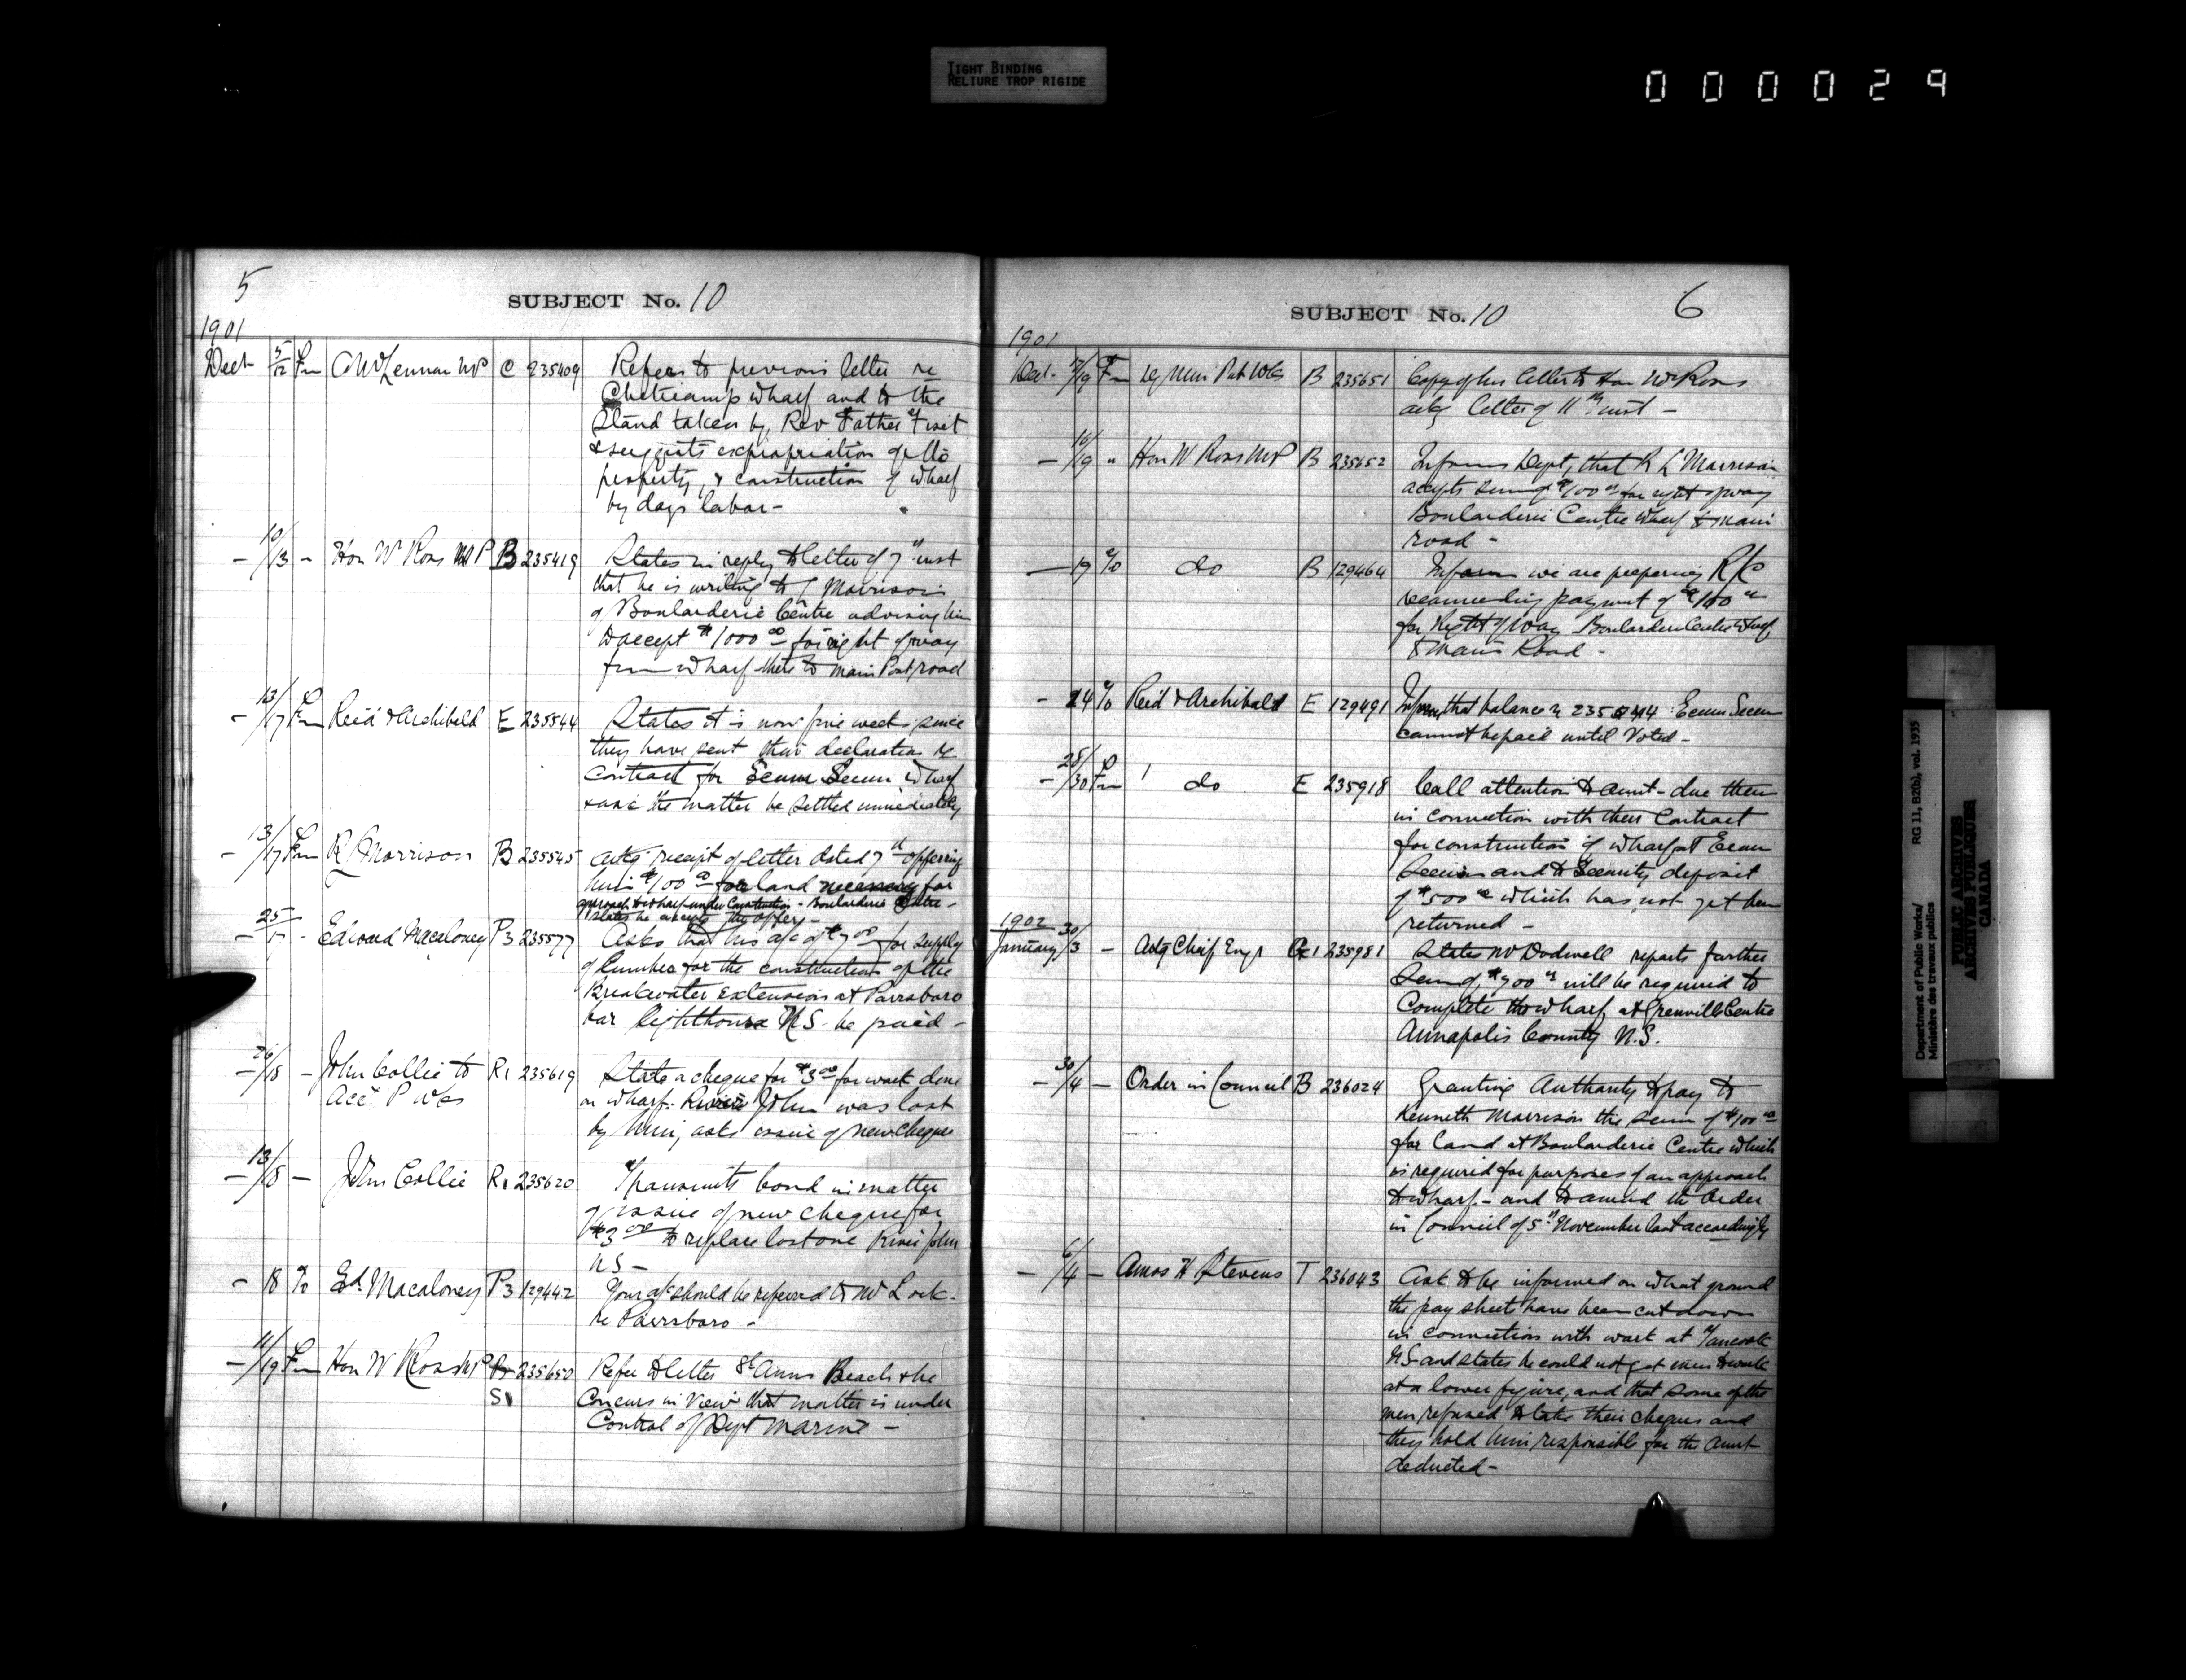 TIGHT BINDING
RELIURE TROP RIGIDE
000029
5
SUBJECT No. 10
1901
Dect 5/12 Fm A McLennan MP C 235409 Refers to previous letter re
Cheticamp wharf and to the
Stand taken by Rev Father Fiset
& suggests expropriation of
property, & construction of wharf
by days labor -
- 10/13 - Hon W Ross MP B 235419 States in reply to letter of 7" inst
that he is writing to Morrison
of Boularderie Centre advising him
to accept $1000 00 for right of way
from wharf there to main Post road
- 13/17 Fm Reid & Archibald E 235544 States it is now five weeks since
they have sent their declaration re
contract for Ecum Secum Wharf
& ask the matter be settled immediately
- 13/17 Fm R Morrison B 235545 Ackg receipt of letter dated 7th offering
him $100 00 for land necessary for
approach to wharf under Construction - Boularderie Centre -
States he accepts the offer -
- 25/17 - Edward Macaloney P3 235577 Asks that his a/c of $7 00 for supply
of lumber for the construction of the
Breakwater extension at Parrsboro
bar lighthouse N.S. be paid -
- 26/18 - John Collie to R1 235619 State a cheque for $3 00 for work done
Acct P Wks on wharf River John was lost
by him, asks issue of new cheque
- 13/18 - John Collie R1 235620 Transmits bond in matter
of issue of new cheque for
$3 00 to replace lost one River John
NS -
- 18 To Ed. Macaloney P3 129442 Your a/c should be referred to Mr Lock.
re Parrsboro -
- 11/19 Fm Hon W Ross MP 235650 Refer to letter St Anns Beach & he
S1 Concurs in view that matter is under
Control of Dept Marine -
SUBJECT No. 10
6
1901
Dect. 17/19 Fm Dy Min Pub Wks B 235651 Copy of his letter to Hon W Ross
ackg letter of 11th inst -
- 16/19 " Hon W Ross MP B 235652 Informs Dept, that K L Morrison
accepts sum of $100 00 for right of way
Boularderie Centre wharf to main
road -
- 19 To do B 129464 Inform we are preparing R/C
recommending payment of $100 00
for right of way Boularderie Centre Wharf
to main Road -
- 24 To Reid & Archibald E 129491 Inform that balance re 235544 Ecum Secum
cannot be paid until Voted -
- 28/30 Fm do E 235918 Call attention to amt - due them
in connection with their Contract
for construction of wharf at Ecum
Secum and to Security deposit
of $500 00 which has not yet been
returned -
1902
January 30/3 - Actg Chief Engr G1 235981 States Mr Dodwell reports further
Sum of $900 00 will be required to
Complete the wharf at Granville Centre
Annapolis County N.S.
- 30/4 - Order in Council B 236024 Granting Authority to pay to
Kenneth Morrison the sum of $100 00
for land at Boularderie Centre which
is required for purposes of an approach
to wharf - and to amend the Order
in Council of 5th November last accordingly
- 6/4 - Amos H Stevens T 236043 Ask to be informed on what ground
the pay sheets have been cut down
in connection with work at Tancook
NS and states he could not get men to work
at a lower figure, and that some of the
men refused to take their cheques and
they hold him responsible for the amt
deducted -
Department of Public Works/
Ministère des travaux publics
RG 11, B2(b), vol. 1935
PUBLIC ARCHIVES
ARCHIVES PUBLIQUES
CANADA